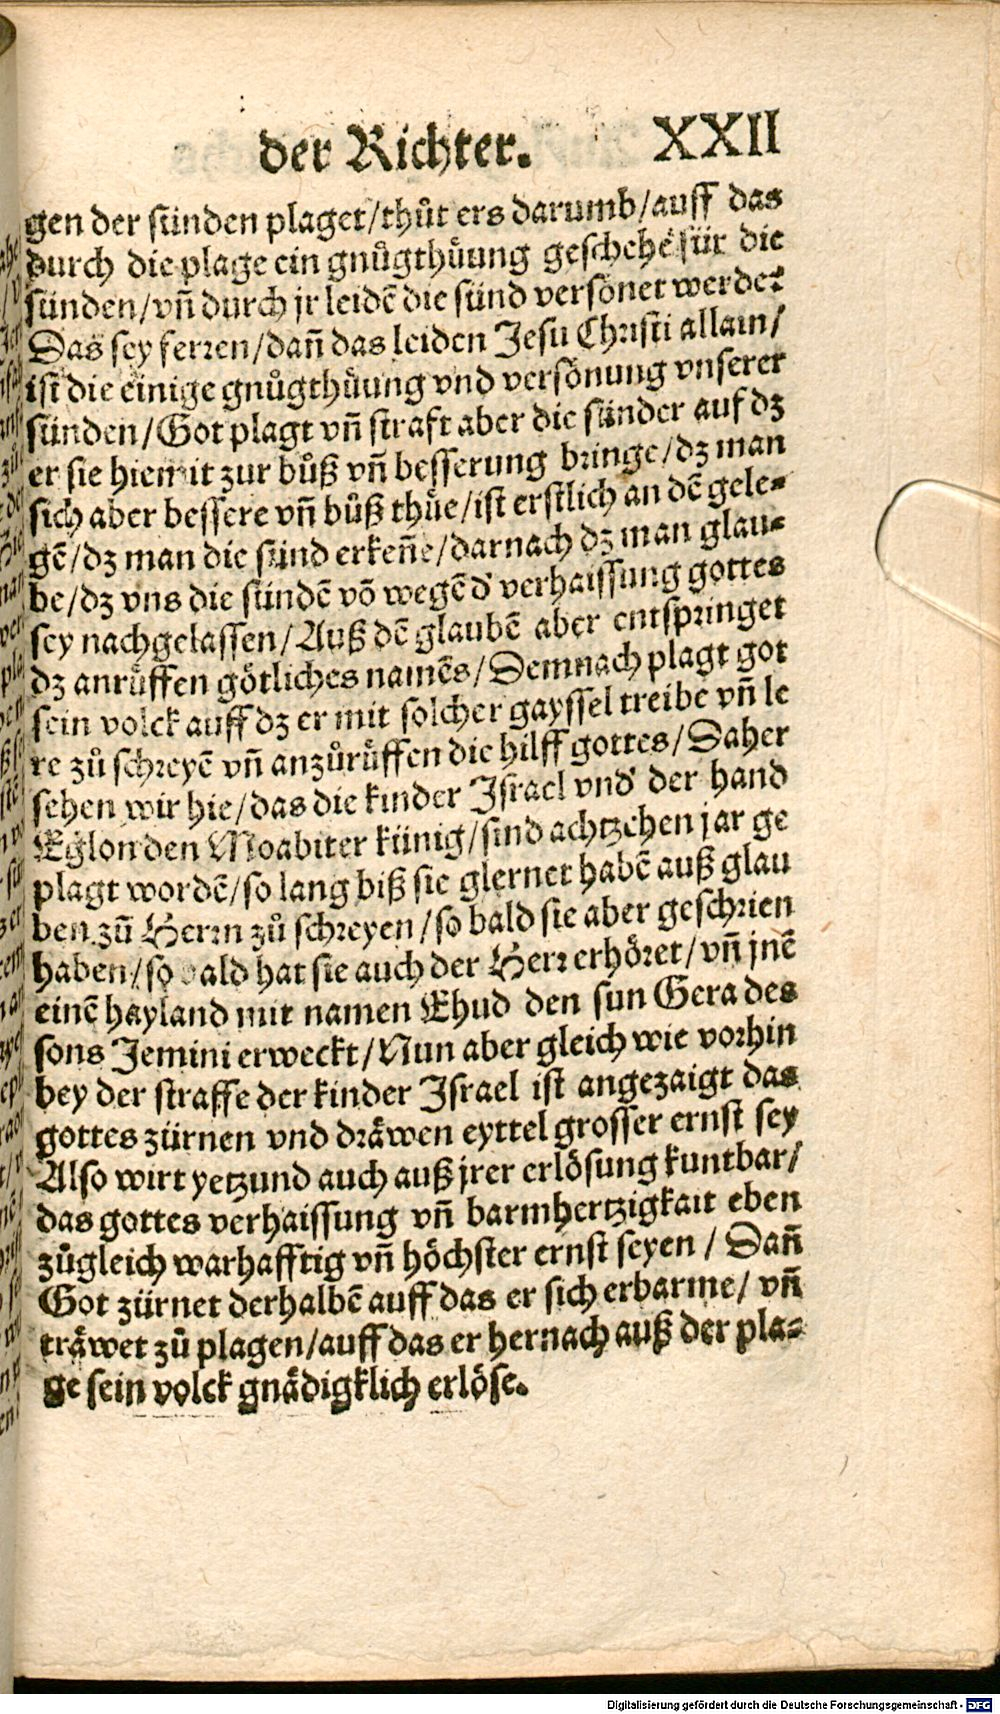 der Richter. XXII
gen der sünden plaget/thůt ers darumb/auff das
durch die plage ein gnůgthůung geschehe für die
sünden/vñ durch jr leidē die sünd versönet werde?
Das sey ferren/dañ das leiden Jesu Christi allain/
ist die einige gnůgthůung vnd versönung vnserer
sünden/Got plagt vñ straft aber die sünder auf dz
er sie hiemit zur bůß vñ besserung bringe/dz man
sich aber bessere vñ bůß thůe/ist erstlich an dē gele-
gē/dz man die sünd erkeñe/darnach dz man glau-
be/dz vns die sündē vō wegē d' verhaissung gottes
sey nachgelassen/Auß dē glaubē aber entspringet
dz anrůffen götliches namēs/Demnach plagt got
sein volck auff dz er mit solcher gayssel treibe vñ le
re zů schreyē vñ anzůrůffen die hilff gottes/Daher
sehen wir hie/das die kinder Israel vnd' der hand
Eglon den Moabiter künig/sind achtzehen jar ge
plagt wordē/so lang biß sie glernet habē auß glau
ben zů Herrn zů schreyen/so bald sie aber geschrien
haben/so bald hat sie auch der Herr erhöret/vñ jnē
einē hayland mit namen Ehud den sun Gera des
sons Jemini erweckt/Nun aber gleich wie vorhin
bey der straffe der kinder Israel ist angezaigt das
gottes zürnen vnd dräwen eyttel grosser ernst sey
Also wirt yetzund auch auß jrer erlösung kuntbar/
das gottes verhaissung vñ barmhertzigkait eben
zůgleich warhafftig vñ höchster ernst seyen / Dañ
Got zürnet derhalbē auff das er sich erbarme/ vñ
träwet zů plagen/auff das er hernach auß der pla-
ge sein volck gnädigklich erlöse.
Digitalisierung gefördert durch die Deutsche Forschungsgemeinschaft - DFG